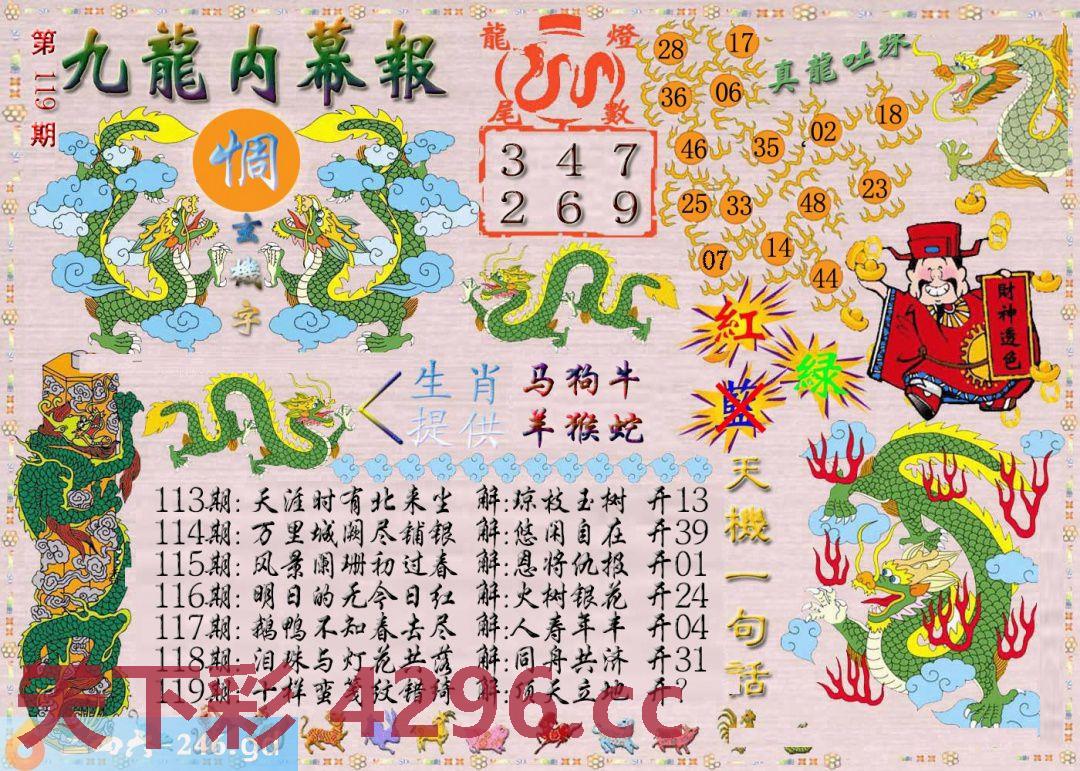 第119期
九龍内幕報
惆
玄機字
龍燈
尾數
3 4 7
2 6 9
真龍吐珠
28 17
36 06
46 35 02 18
25 33 48 23
07 14 44
紅
綠
藍
財神透色
生肖
提供
马狗牛
羊猴蛇
113期: 天涯时有北来尘 解:琼枝玉树 开13
114期: 万里城阙尽铺银 解:悠闲自在 开39
115期: 风景阑珊初过春 解:恩将仇报 开01
116期: 明日的无今日红 解:火树银花 开24
117期: 鹅鸭不知春去尽 解:人寿年丰 开04
118期: 泪珠与灯花共落 解:同舟共济 开31
119期: 十样蛮笺纹错绮 解:顶天立地 开?
天機一句話
天下彩 4296.cc
=246.gd